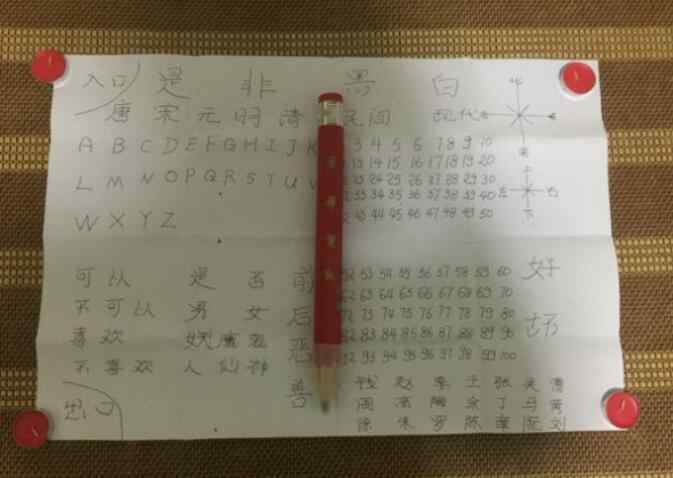 入口 是 非 黑 白
唐 宋 元 明 清 民间 现代 北
A B C D E F G H I J K 3 4 5 6 7 8 9 10
13 14 15 16 17 18 19 20 南
L M N O P Q R S T U V 23 24 25 26 27 28 29 30 上
33 34 35 36 37 38 39 40 左 右
W X Y Z 43 44 45 46 47 48 49 50 下
可以 是 否 前 52 53 54 55 56 57 58 59 60 好
62 63 64 65 66 67 68 69 70
不可以 男 女 后 72 73 74 75 76 77 78 79 80 坏
喜欢 妖 魔 鬼 恶 82 83 84 85 86 87 88 89 90
不喜欢 人 仙 神 92 93 94 95 96 97 98 99 100
善 钱 赵 李 王 张 吴
出口 周 高 陶 余 丁 马 黄
徐 朱 罗 陈 章 阮 刘